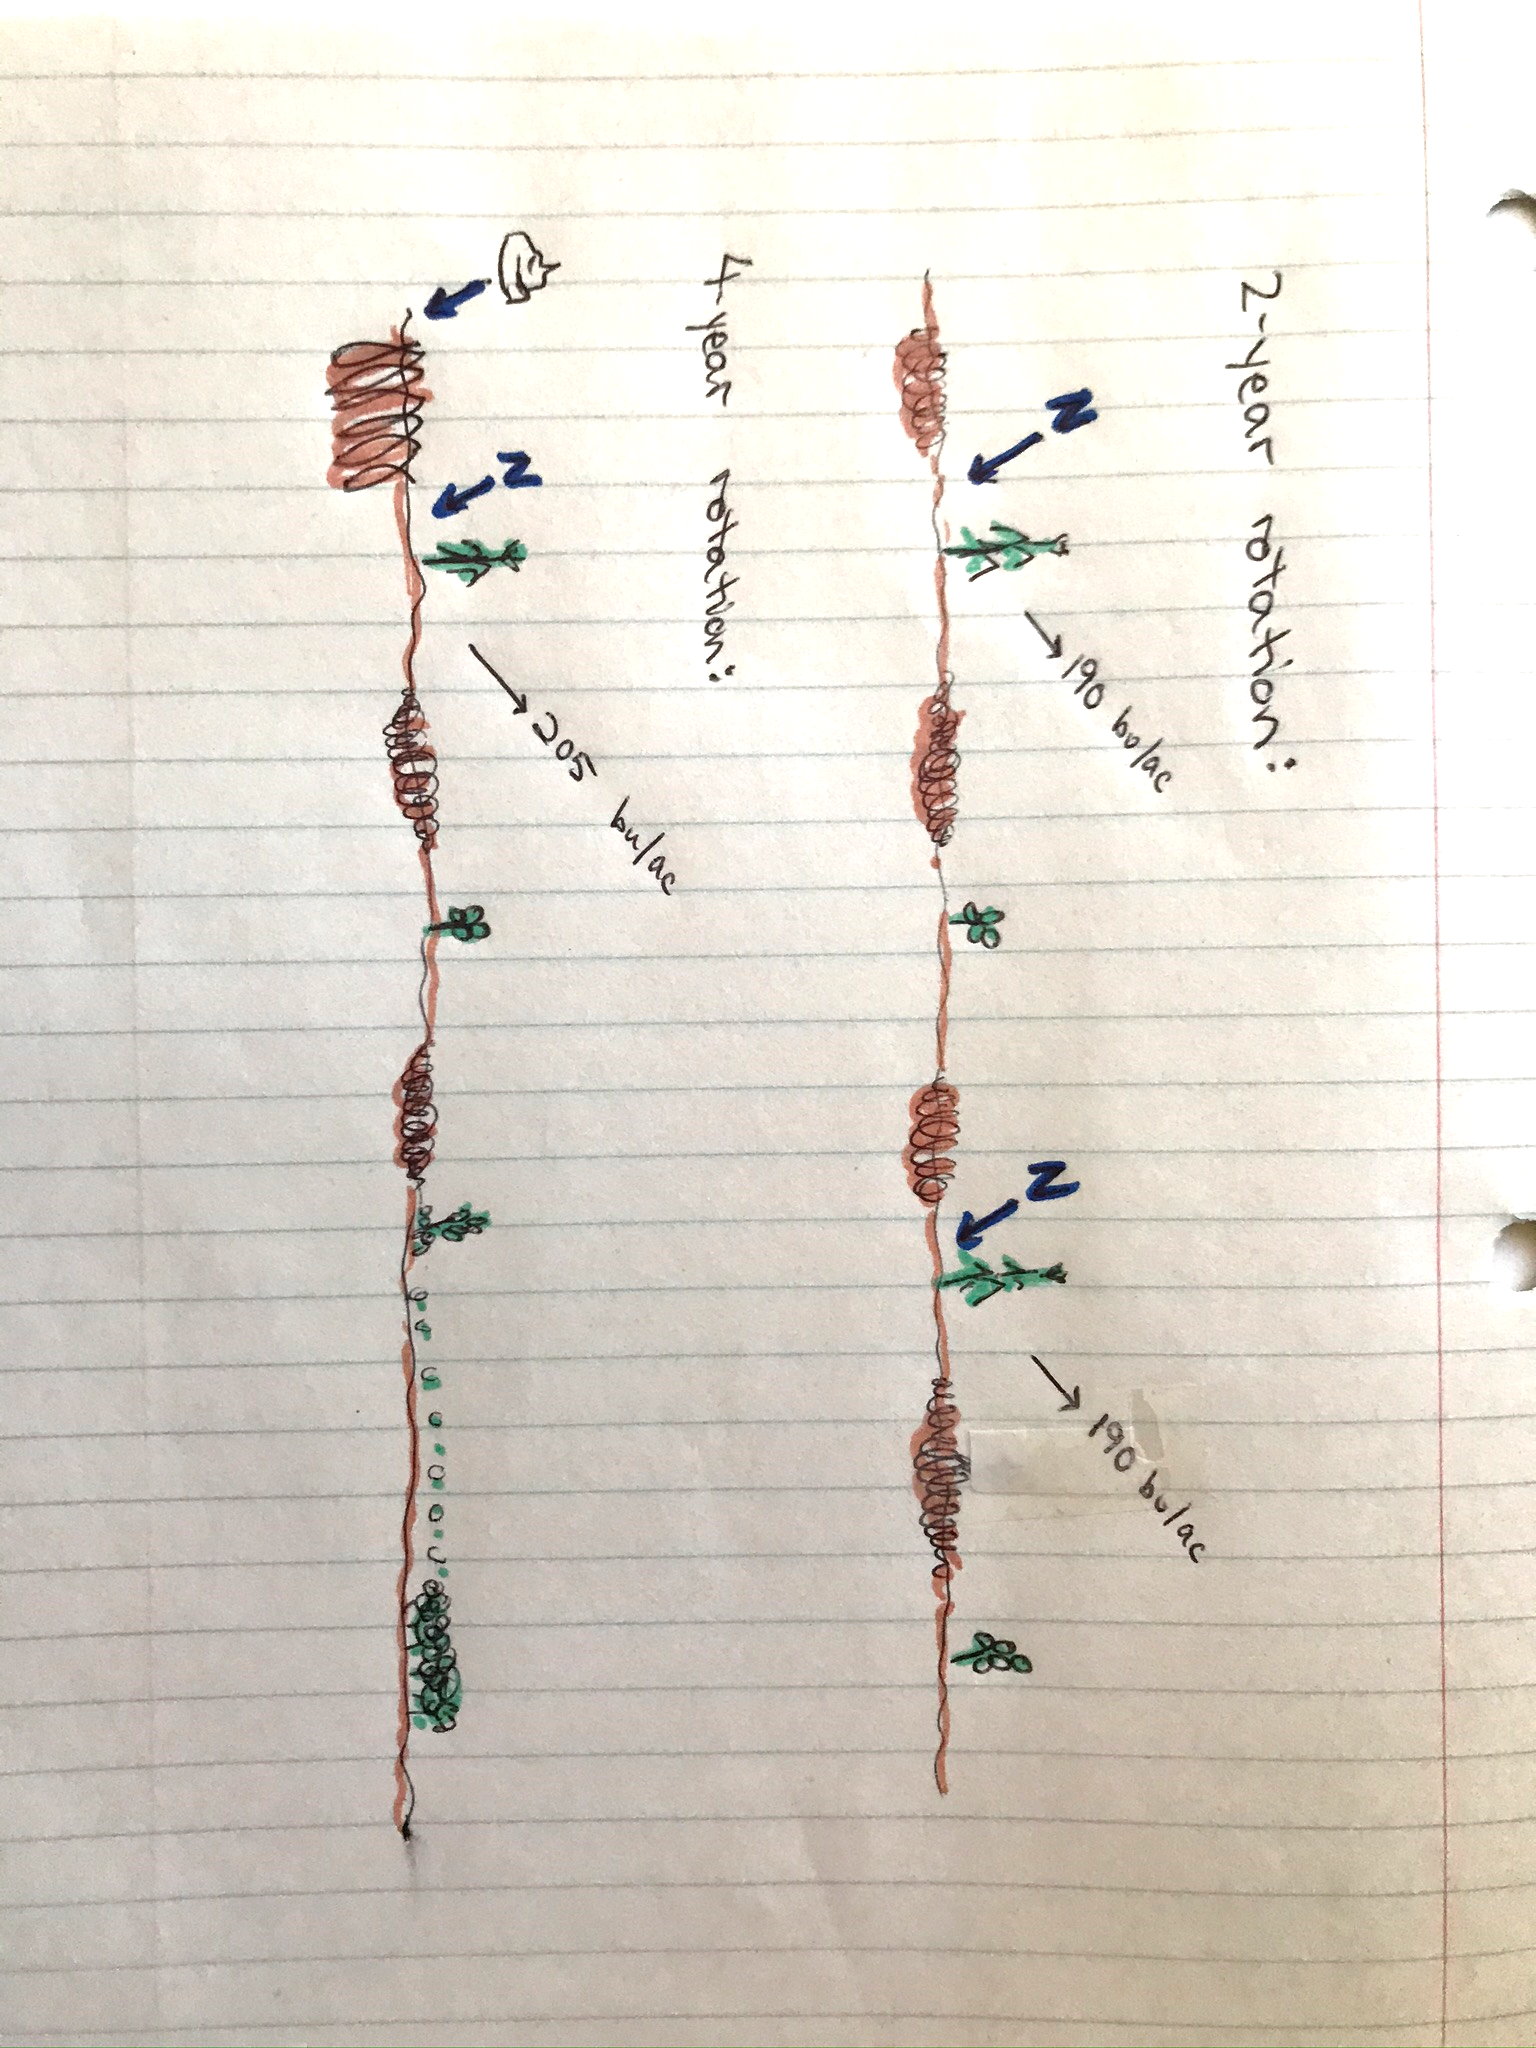 2-year rotation:
N
→ 190 bu/ac
N
→ 190 bu/ac
4-year rotation:
N
→ 205 bu/ac